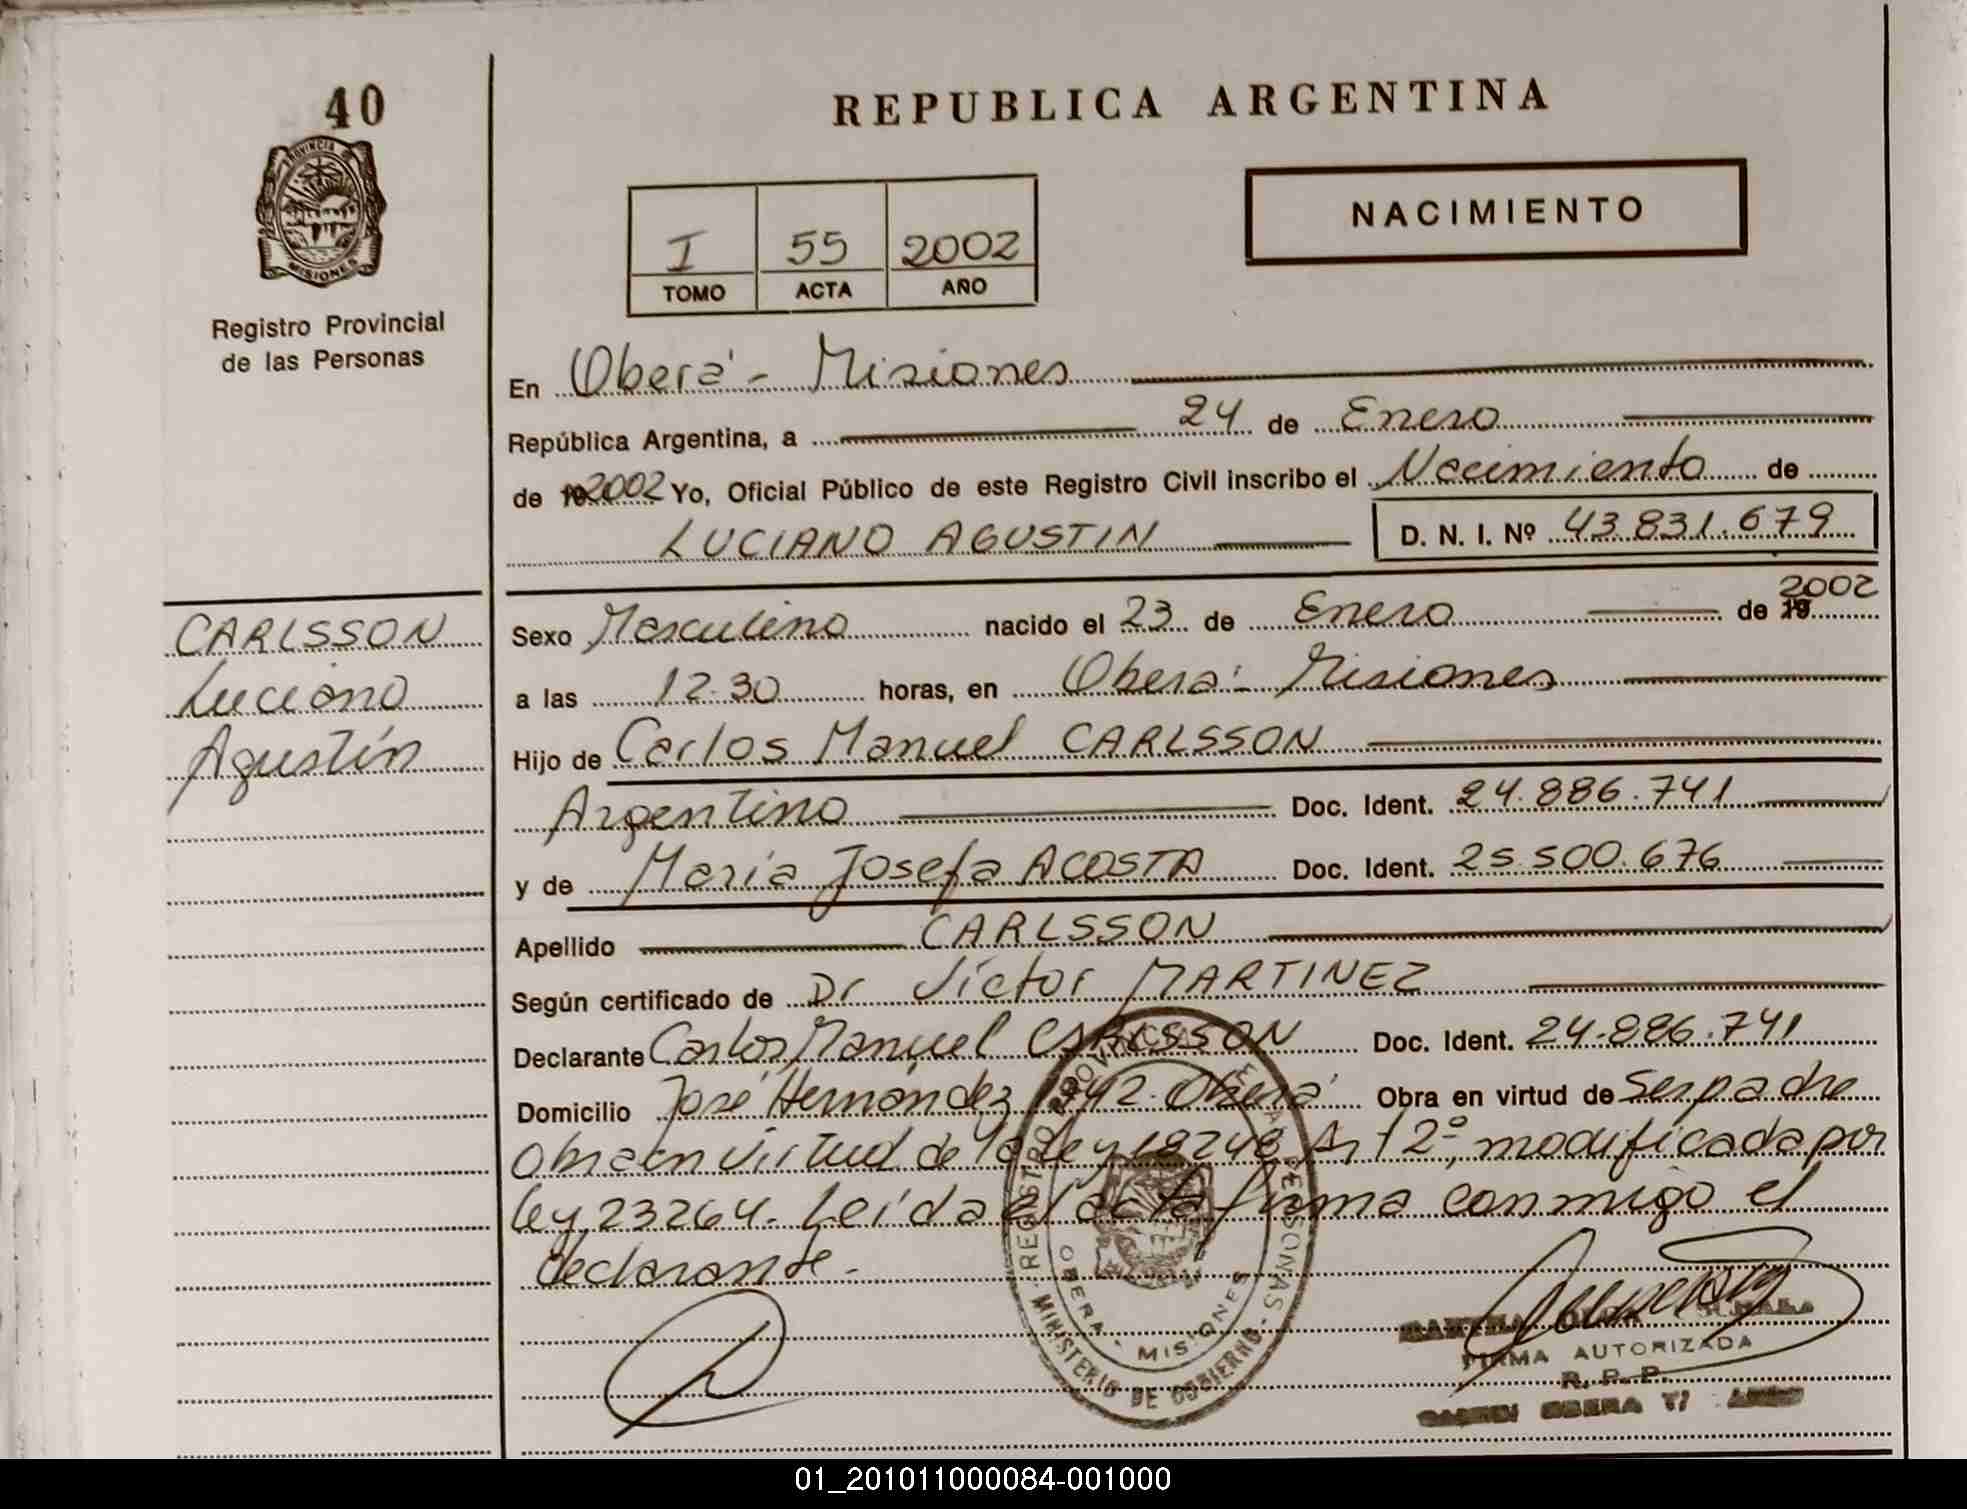 40
REPUBLICA ARGENTINA
PROVINCIA DE
MISIONES
Registro Provincial
de las Personas
I 55 2002
TOMO ACTA AÑO
NACIMIENTO
En Oberá - Misiones
República Argentina, a 24 de Enero
de 2002 Yo, Oficial Público de este Registro Civil inscribo el Nacimiento de
LUCIANO AGUSTIN D. N. I. Nº 43.831.679
CARLSSON
Luciano
Agustín
Sexo Masculino nacido el 23 de Enero de 2002
a las 12.30 horas, en Oberá - Misiones
Hijo de Carlos Manuel CARLSSON
Argentino Doc. Ident. 24.886.741
y de María Josefa ACOSTA Doc. Ident. 25.500.676
Apellido CARLSSON
Según certificado de Dr Víctor MARTINEZ
Declarante Carlos Manuel CARLSSON Doc. Ident. 24.886.741
Domicilio José Hernández 1942 - Oberá Obra en virtud de Ser padre
Obra en virtud de la ley 18248 Art 2º, modificada por
ley 23264. Leída el acta firma conmigo el
declarante.-
REGISTRO PROVINCIAL DE LAS PERSONAS
MINISTERIO DE GOBIERNO
OBERA - MISIONES
FIRMA AUTORIZADA
R. P. P.
OBERA
01_201011000084-001000